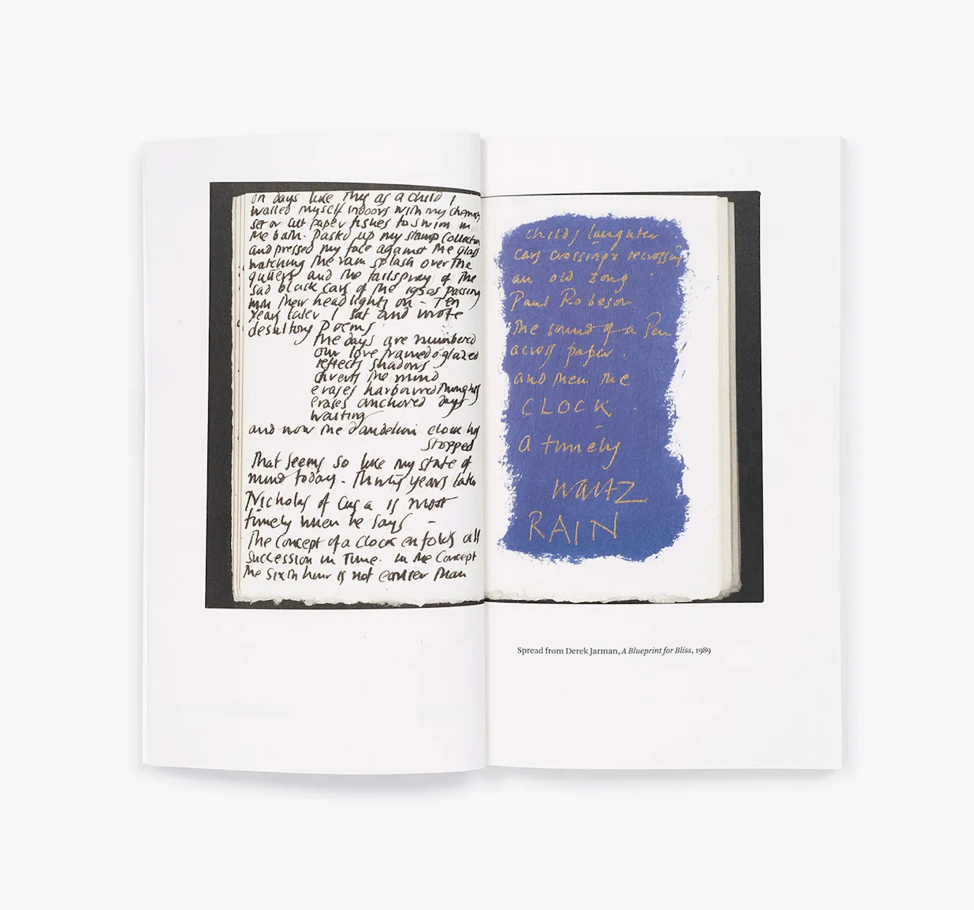 on days like this as a child I
walled myself indoors with my
set or cut paper fishes to swim in
the bath. Pasted up my stamp collection
and pressed my face against the glass
watching the rain splash over the
gutters and the tailspray of the
sad black cars of the 1950s passing
with their headlights on - Ten
years later I sat and wrote
desultory Poems.
The days are numbered
our love framed & glazed
reflects shadows
diverts the mind
erases harboured thoughts
erases anchored days
waiting
and now the dandelion clock has
stopped
That seems so like my state of
mind today. Thirty years later
Nicholas of Cusa is most
timely when he says -
The Concept of a Clock enfolds all
Succession in Time. In the Concept
the sixth hour is not earlier than
childs laughter
Cars crossing & recrossing
an old song
Paul Robeson
the sound of a Pen
across paper.
and then the
CLOCK.
a timely
WALTZ
RAIN
Spread from Derek Jarman, A Blueprint for Bliss, 1989